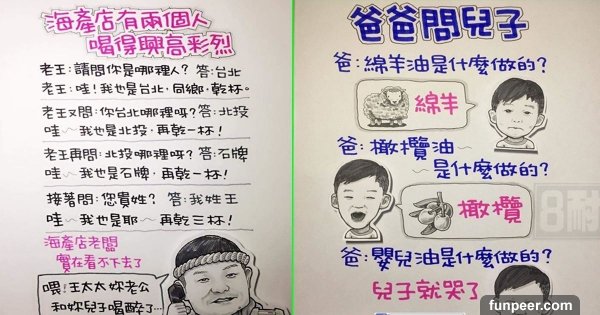 海產店有兩個人
喝得興高彩烈
老王:請問你是哪裡人? 答:台北
老王:哇!我也是台北,同鄉,乾杯。
老王又問:你台北哪裡呀?答:北投
哇~我也是北投,再乾一杯!
老王再問:北投哪裡呀?答:石牌
哇~我也是石牌,再乾一杯!
接著問:您貴姓? 答:我姓王
哇~我也是耶~再乾三杯!
海產店老闆
實在看不下去了
喂!王太太妳老公
和妳兒子喝醉了...
爸爸問兒子
爸:綿羊油是什麼做的?
綿羊
爸:橄欖油
是什麼做的?
橄欖
爸:嬰兒油是什麼做的?
兒子就哭了
funpeer.com